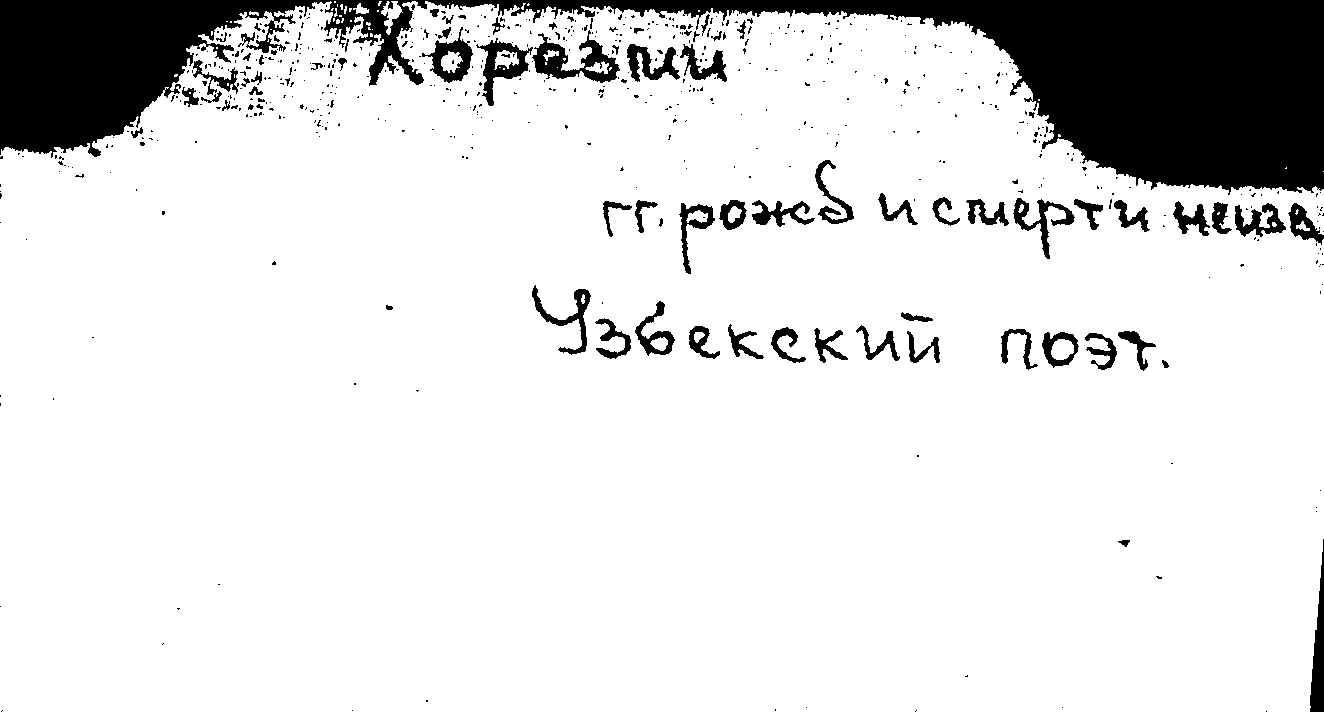 Хорезми
гг. рожд и смерти неизв
Узбекский поэт.